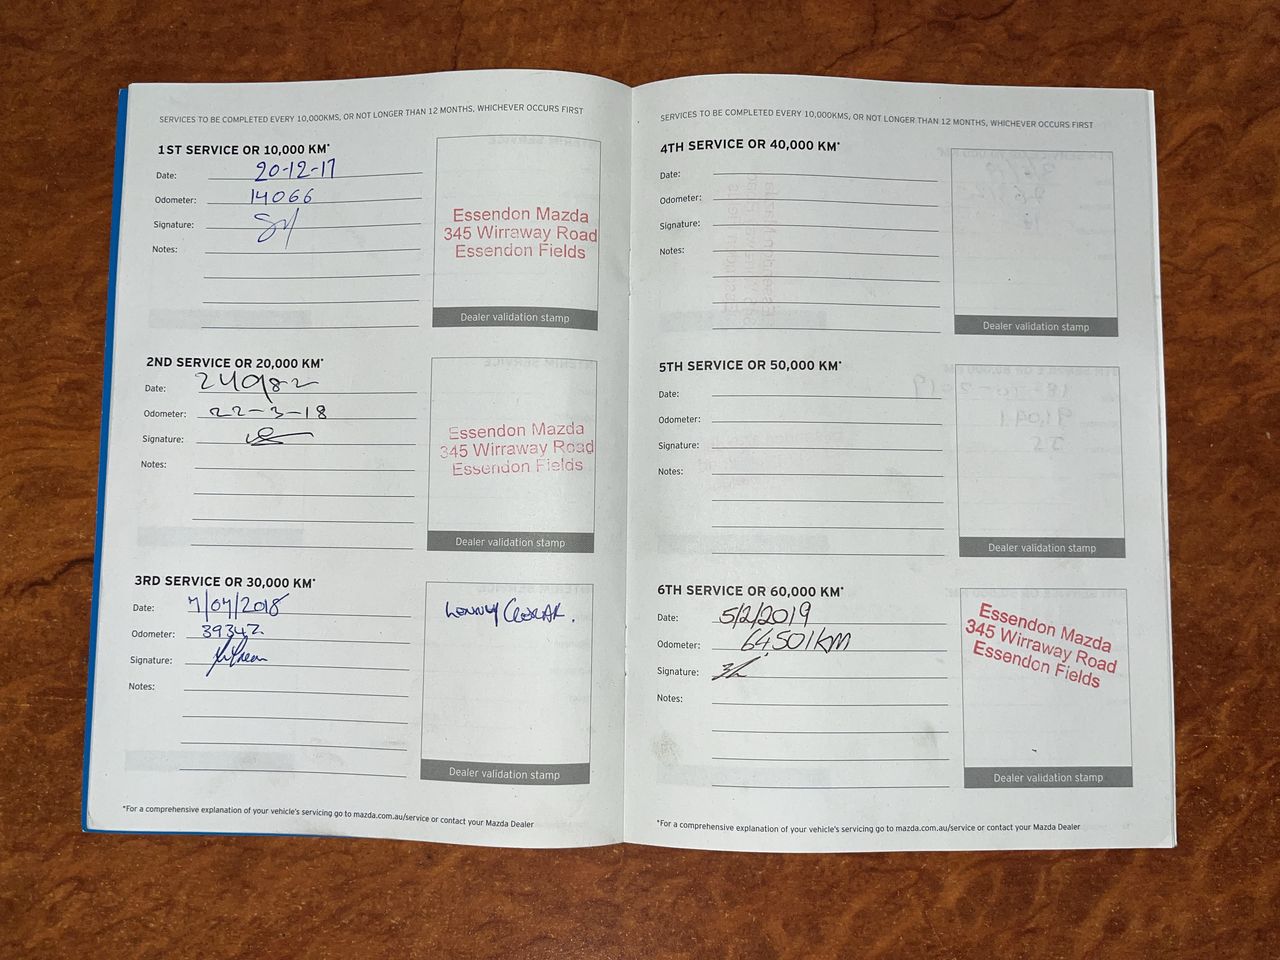 SERVICES TO BE COMPLETED EVERY 10,000KMS, OR NOT LONGER THAN 12 MONTHS, WHICHEVER OCCURS FIRST
1ST SERVICE OR 10,000 KM*
Date: 20-12-17
Odometer: 14066
Signature:
Notes:
Essendon Mazda
345 Wirraway Road
Essendon Fields
Dealer validation stamp
2ND SERVICE OR 20,000 KM*
Date: 24982
Odometer: 22-3-18
Signature:
Notes:
Essendon Mazda
345 Wirraway Road
Essendon Fields
Dealer validation stamp
3RD SERVICE OR 30,000 KM*
Date: 7/07/2018
Odometer: 39342
Signature:
Notes:
Dealer validation stamp
*For a comprehensive explanation of your vehicle's servicing go to mazda.com.au/service or contact your Mazda Dealer
SERVICES TO BE COMPLETED EVERY 10,000KMS, OR NOT LONGER THAN 12 MONTHS, WHICHEVER OCCURS FIRST
4TH SERVICE OR 40,000 KM*
Date:
Odometer:
Signature:
Notes:
Dealer validation stamp
5TH SERVICE OR 50,000 KM*
Date:
Odometer:
Signature:
Notes:
Dealer validation stamp
6TH SERVICE OR 60,000 KM*
Date: 5/2/2019
Odometer: 64501KM
Signature:
Notes:
Essendon Mazda
345 Wirraway Road
Essendon Fields
Dealer validation stamp
*For a comprehensive explanation of your vehicle's servicing go to mazda.com.au/service or contact your Mazda Dealer